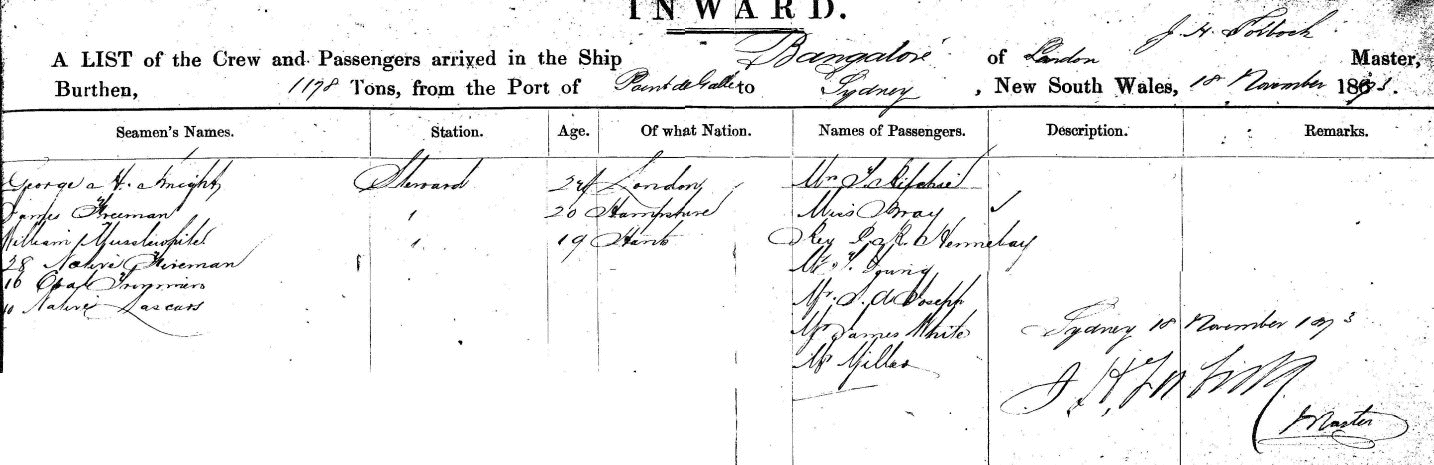 INWARD.
J. H. Tolboch
A LIST of the Crew and Passengers arrived in the Ship Bangalore of London Master,
Burthen, 1178 Tons, from the Port of Point de Galle to Sydney, New South Wales, 18 November 1873.
Seamen's Names. Station. Age. Of what Nation. Names of Passengers. Description. Remarks.
George H. Knight Steward 24 London Mr T. Ritchie
James Freeman " 20 Hampshire Miss Bray ✓
William " 19 Hants Rev P. R. Hennebay
28 Native Fireman Mr T. Young
16 Coal Trimmers Mr. S. de Joseph
Native Lascars Mr James White
Sydney 18 November 1873
Mr Miller
Master